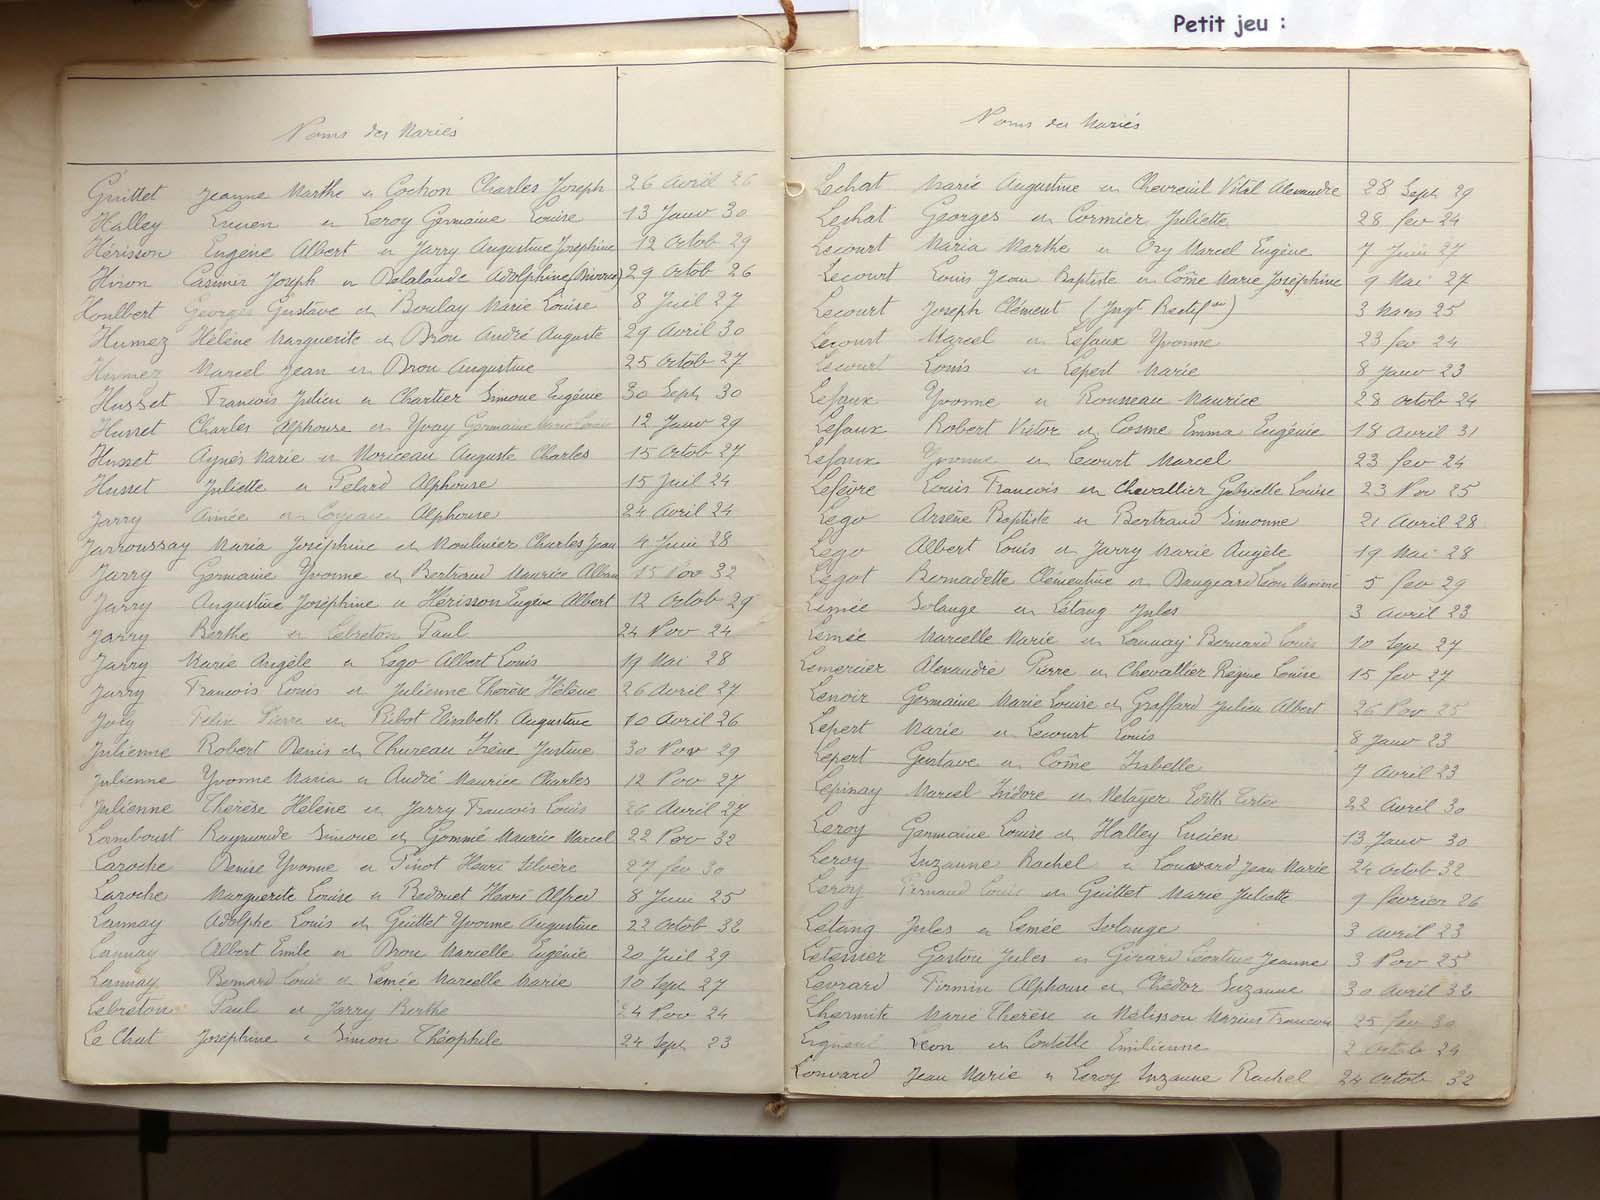 Petit jeu :
Noms des Mariés
Guittet Jeanne Marthe et Cochon Charles Joseph 26 Avril 26
Halley Lucien et Leroy Germaine Louise 13 Janv 30
Hérisson Eugène Albert et Jarry Augustine Joséphine 12 Octob 29
Hiron Casimir Joseph et Delalande Adolphine (Divorce) 29 Octob 26
Houlbert Georges Gustave et Boulay Marie Louise 8 Juil 27
Humez Hélène Marguerite et Drou André Auguste 29 Avril 30
Humez Marcel Jean et Drou Augustine 25 Octob 27
Husset François Julien et Chartier Simone Eugénie 30 Sept 30
Husset Charles Alphonse et Yvay Germaine Marie 12 Janv 29
Husset Agnès Marie et Moriceau Auguste Charles 15 Octob 27
Husset Juliette et Pelard Alphonse 15 Juil 24
Jarry Aimée et Alphonse 24 Avril 24
Jarroussay Maria Joséphine et Moulinier Charles Jean 4 Juin 28
Jarry Germaine Yvonne et Bertrand Maurice Alban 15 Nov 32
Jarry Augustine Joséphine et Hérisson Eugène Albert 12 Octob 29
Jarry Berthe et Lebreton Paul 24 Nov 24
Jarry Marie Angèle et Lego Albert Louis 19 Mai 28
Jarry François Louis et Julienne Thérèse Hélène 26 Avril 27
Félix Pierre et Ribot Elisabeth Augustine 10 Avril 26
Julienne Robert Denis et Thureau Irène Justine 30 Nov 29
Julienne Yvonne Maria et André Maurice Charles 12 Nov 27
Julienne Thérèse Hélène et Jarry François Louis 26 Avril 27
Lamboust Raymonde Simone et Gommé Maurice Marcel 22 Nov 32
Laroche Denise Yvonne et Pinot Henri Silvère 27 fev 30
Laroche Marguerite Louise et Bedouet Henri Alfred 8 Juin 25
Launay Adolphe Louis et Guittet Yvonne Augustine 22 Octob 32
Launay Albert Emile et Drou Marcelle Eugénie 20 Juil 29
Launay Bernard Louis et Lemée Marcelle Marie 10 Sept 27
Lebreton Paul et Jarry Berthe 24 Nov 24
Le Chat Joséphine et Simon Théophile 24 Sept 23
Noms des Mariés
Lechat Marie Augustine et Chevreuil Vital Alexandre 28 Sept 29
Lechat Georges et Cormier Juliette 28 fev 24
Lecourt Maria Marthe et Ory Marcel Eugène 7 Juin 27
Lecourt Louis Jean Baptiste et Côme Marie Joséphine 9 Mai 27
Lecourt Joseph Clément (Jugt Rectif on) 3 Mars 25
Lecourt Marcel et Lefaux Yvonne 23 fev 24
Lecourt Louis et Lepert Marie 8 Janv 23
Lefaux Yvonne et Rousseau Maurice 28 Octob 24
Lefaux Robert Victor et Cosme Emma Eugénie 18 Avril 31
Lefaux Yvonne et Lecourt Marcel 23 fev 24
Lefèvre Louis François et Chevallier Gabrielle Louise 23 Nov 25
Lego Arsène Baptiste et Bertrand Simonne 21 Avril 28
Lego Albert Louis et Jarry Marie Angèle 19 Mai 28
Légot Bernadette Clémentine et Daugeard Léon 5 fev 29
Lemée Solange et Létang Jules 3 Avril 23
Lemée Marcelle Marie et Launay Bernard Louis 10 Sept 27
Lemercier Alexandre Pierre et Chevallier Régine Louise 15 fev 27
Lenoir Germaine Marie Louise et Graffard Julien Albert 26 Nov 25
Lepert Marie et Lecourt Louis 8 Janv 23
Lepert Gustave et Côme Isabelle 7 Avril 23
Lepinay Marcel Isidore et Métayer Edith 22 Avril 30
Leroy Germaine Louise et Halley Lucien 13 Janv 30
Leroy Suzanne Rachel et Louvard Jean Marie 24 Octob 32
Leroy Fernand Louis et Guittet Marie Juliette 9 février 26
Létang Jules et Lemée Solange 3 Avril 23
Letessier Gaston Jules et Gérard Léontine Jeanne 3 Nov 25
Levrard Firmin Alphonse et Chédor Suzanne 30 Avril 32
Lhermite Marie Thérèse et Malisson Marius François 25 fev 30
Léon et Emilienne 2 Octob 24
Louvard Jean Marie et Leroy Suzanne Rachel 24 Octob 32